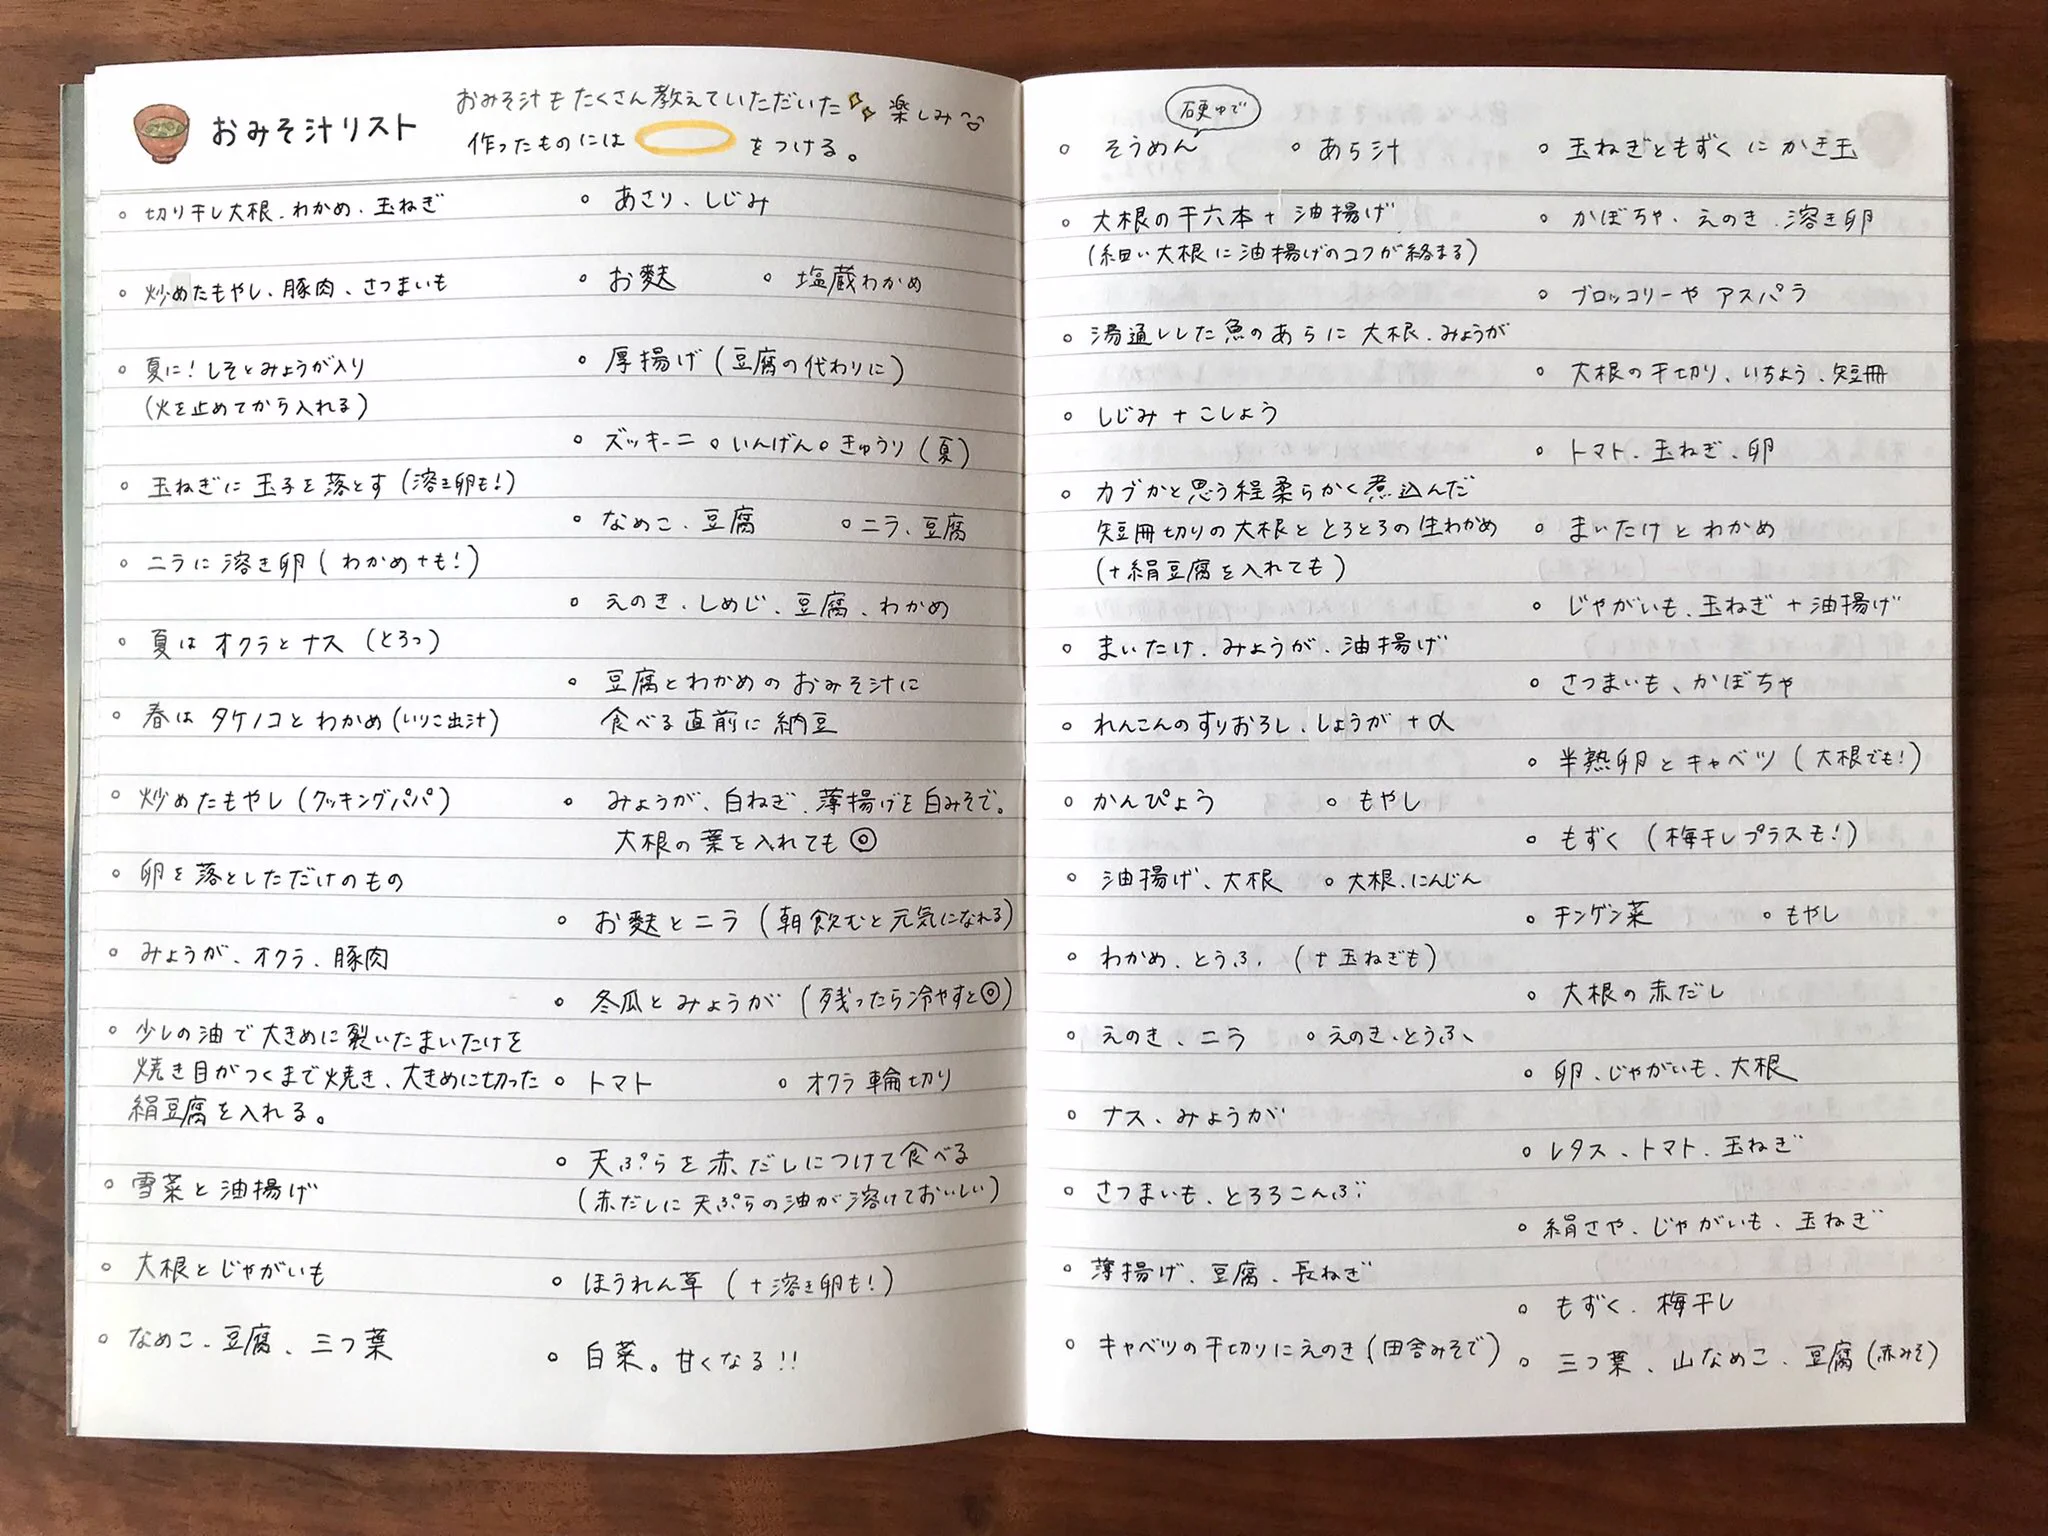 おみそ汁リスト
おみそ汁もたくさん教えていただいた 楽しみ
作ったものには をつける。
。切り干し大根.わかめ.玉ねぎ
。炒めたもやし、豚肉、さつまいも
。夏に!しそとみょうが入り
(火を止めてから入れる)
。玉ねぎに玉子を落とす(溶き卵も!)
。ニラに溶き卵(わかめ+も!)
。夏はオクラとナス(とろっ)
。春はタケノコとわかめ(いりこ出汁)
。炒めたもやし(クッキングパパ)
。卵を落としただけのもの
。みょうが、オクラ、豚肉
。少しの油で大きめに裂いたまいたけを
焼き目がつくまで焼き、大きめに切った
絹豆腐を入れる。
。雪菜と油揚げ
。大根とじゃがいも
。なめこ、豆腐、三つ葉
。あさり、しじみ
。お麩 。塩蔵わかめ
。厚揚げ(豆腐の代わりに)
。ズッキーニ 。いんげん 。きゅうり(夏)
。なめこ、豆腐 。ニラ、豆腐
。えのき、しめじ、豆腐、わかめ
。豆腐とわかめのおみそ汁に
食べる直前に納豆
。みょうが、白ねぎ、薄揚げを白みそで。
大根の葉を入れても◎
。お麩とニラ(朝飲むと元気になれる)
。冬瓜とみょうが(残ったら冷やすと◎)
。トマト 。オクラ輪切り
。天ぷらを赤だしにつけて食べる
(赤だしに天ぷらの油が溶けておいしい)
。ほうれん草(+溶き卵も!)
。白菜。甘くなる!!
硬ゆで
。そうめん 。あら汁 。玉ねぎともずくにかき玉
。大根の千六本+油揚げ
(細い大根に油揚げのコクが絡まる)
。湯通しした魚のあらに大根、みょうが
。しじみ+こしょう
。カブかと思う程柔らかく煮込んだ
短冊切りの大根ととろとろの生わかめ
(+絹豆腐を入れても)
。まいたけ、みょうが、油揚げ
。れんこんのすりおろし、しょうが+α
。かんぴょう 。もやし
。油揚げ、大根 。大根、にんじん
。わかめ、とうふ(+玉ねぎも)
。えのき、ニラ 。えのき、とうふ
。ナス、みょうが
。さつまいも、とろろこんぶ
。薄揚げ、豆腐、長ねぎ
。キャベツの千切りにえのき(田舎みそで)
。かぼちゃ、えのき、溶き卵
。ブロッコリーやアスパラ
。大根の千切り、いちょう、短冊
。トマト、玉ねぎ、卵
。まいたけとわかめ
。じゃがいも、玉ねぎ+油揚げ
。さつまいも、かぼちゃ
。半熟卵とキャベツ(大根でも!)
。もずく(梅干しプラスも!)
。チンゲン菜 。もやし
。大根の赤だし
。卵、じゃがいも、大根
。レタス、トマト、玉ねぎ
。絹さや、じゃがいも、玉ねぎ
。もずく、梅干し
。三つ葉、山なめこ、豆腐(赤みそ)